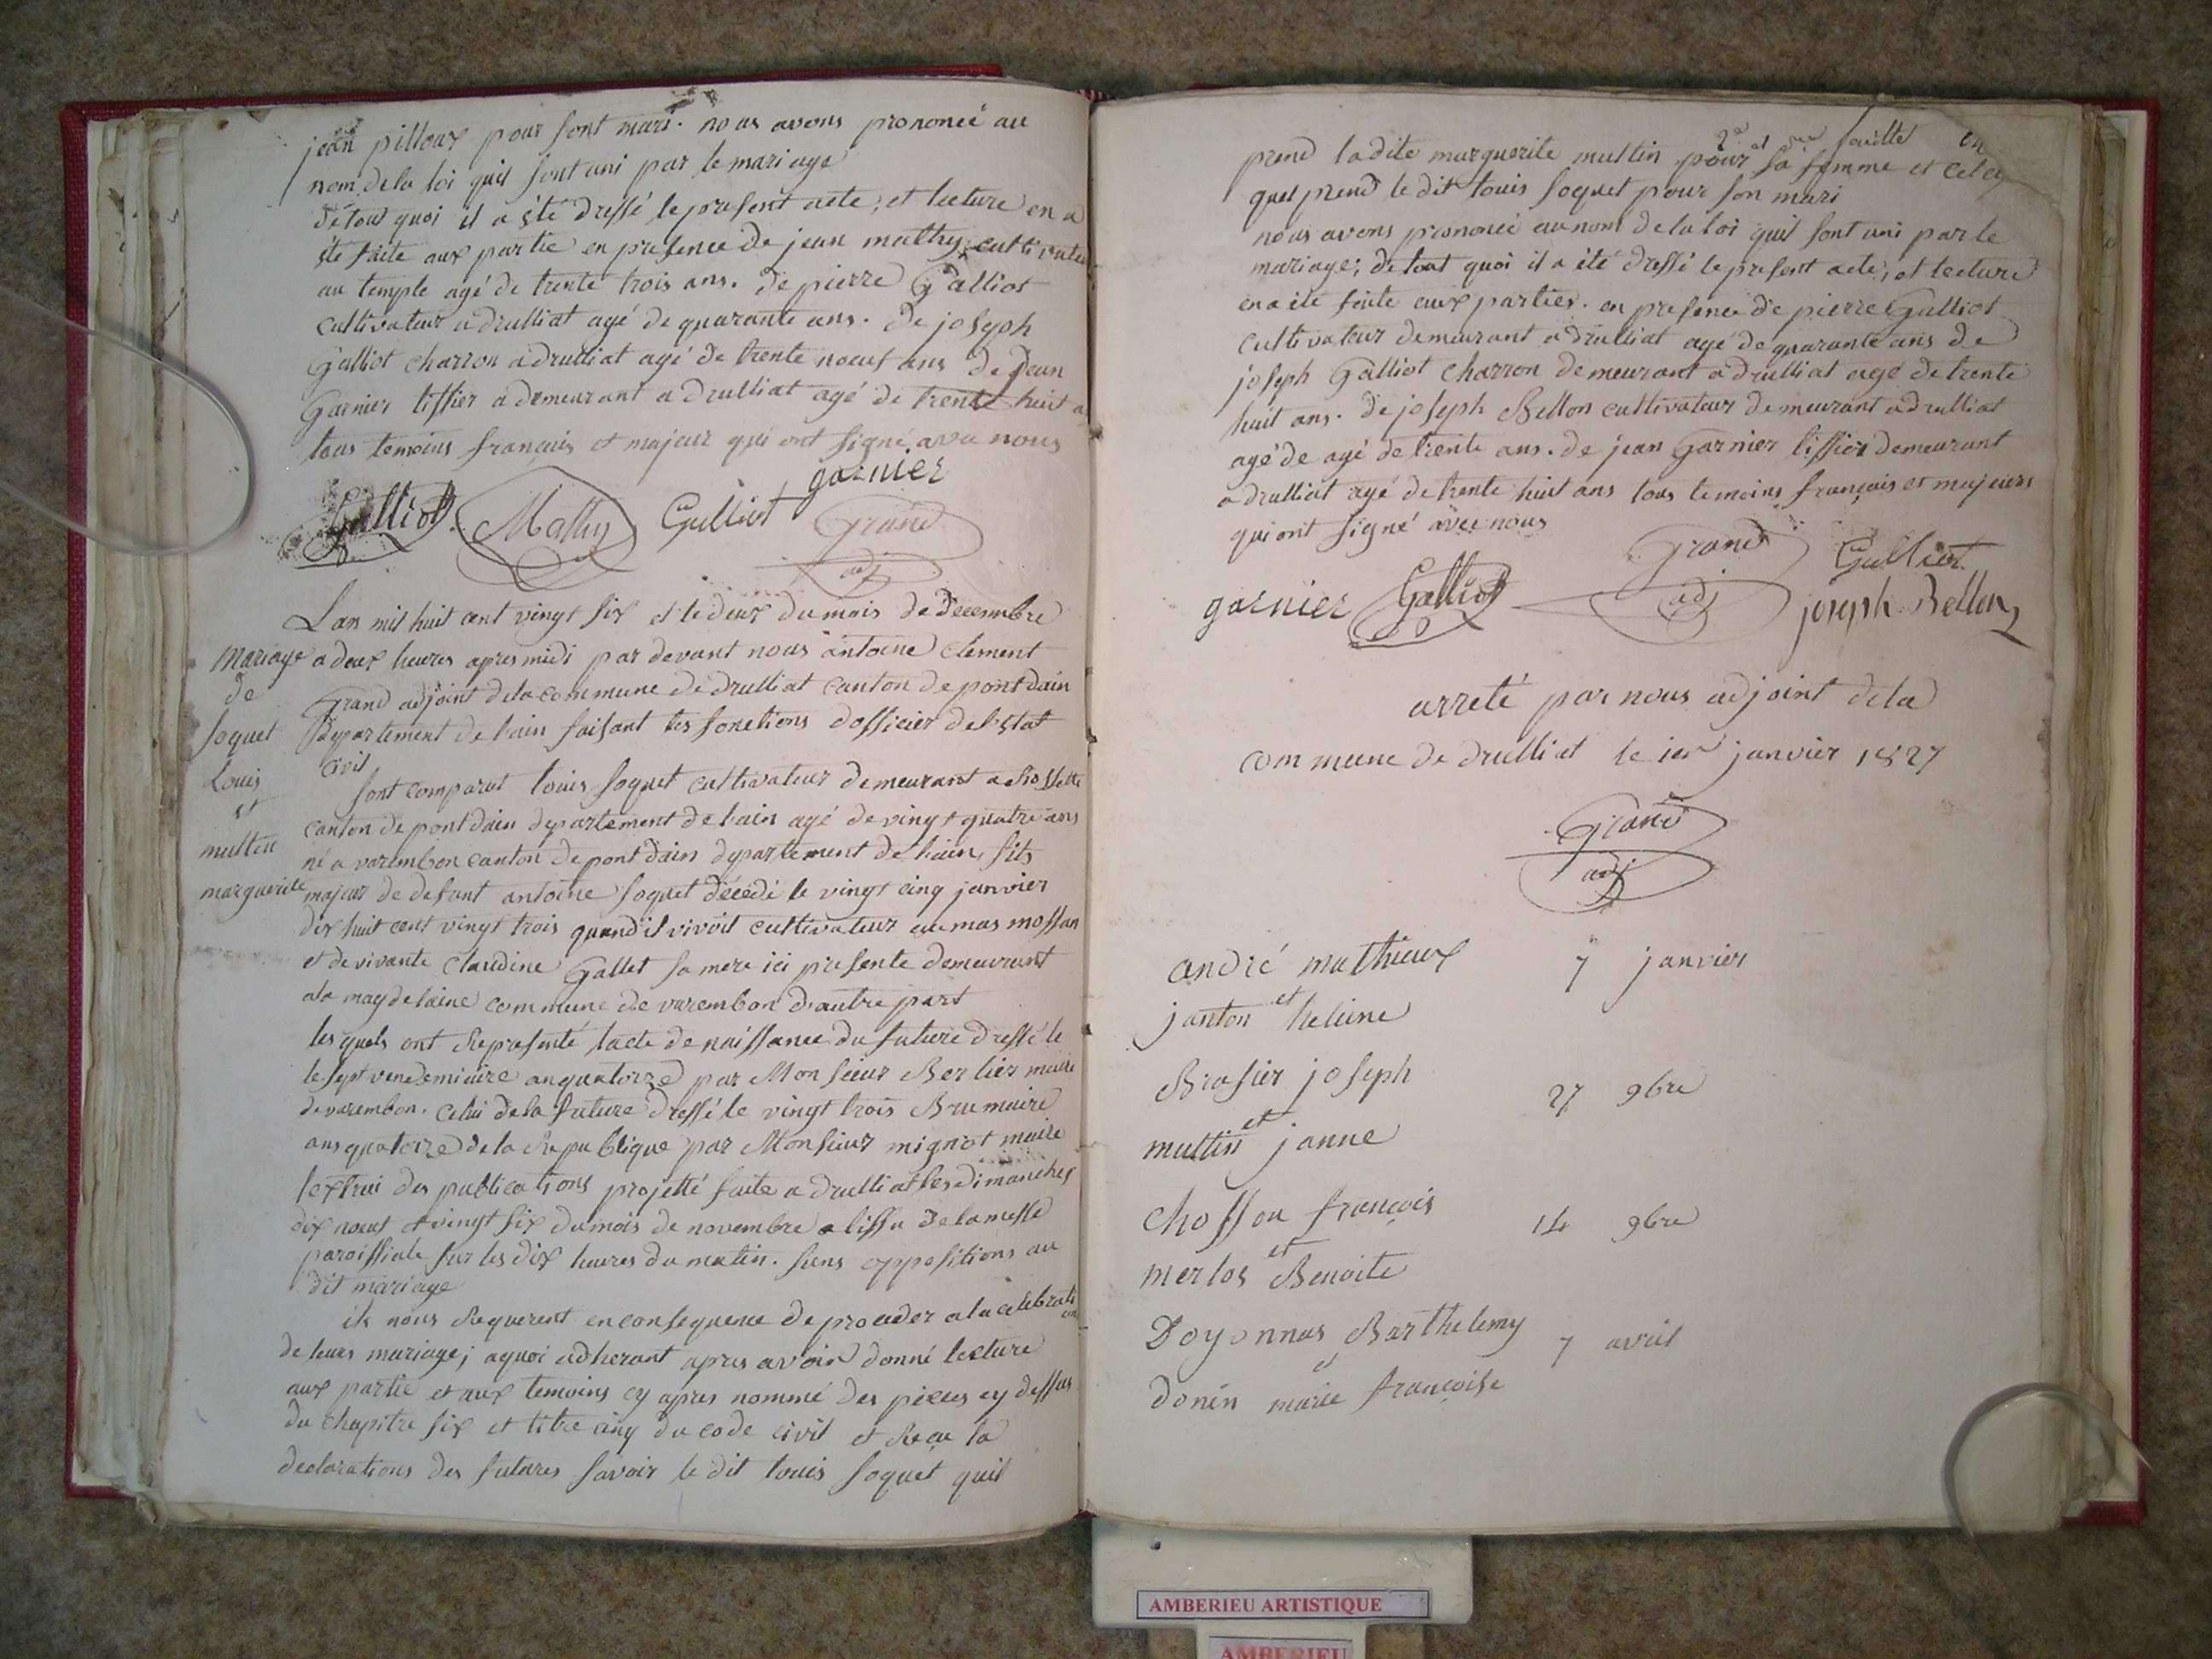 jean pilloux pour sont mari. nous avons prononcé au
nom de la loi quil sont uni par le mariage
de tout quoi il a été dressé le present acte, et lecture en a
été faite aux partie en presence de jean mathy cultivateur
au temple agé de trente trois ans. de pierre Galliot
cultivateur a drulliat agé de quarante ans. de joseph
Galliot charron a drulliat agé de trente noeuf ans de jean
Garnier tissier a demeurant a drulliat agé de trente huit a
tous temoins français et majeur qui ont signé avec nous
garnier
Galliot Mathy Gulliot Grand
adj
Lan mil huit cent vingt six et le deux du mois de decembre
mariage a deux heures apres midi par devant nous antoine clement
de Grand adjoint de la commune de drulliat canton de pontdain
soquet departement de lain faisant les fonctions dofficier de l'état
civil
Louis sont comparut louis soquet cultivateur demeurant a
et canton de pontdain departement de lain agé de vingt quatre ans
multin né a varembon canton de pont dain departement de lain, fils
marguerite majeur de defunt antoine soquet décédé le vingt cinq janvier
dix huit cent vingt trois quand il vivoit cultivateur au mas mossan
et de vivante claudine Gallet sa mere ici presente demeurant
a la magdelaine commune de varembon d'autre part
les quels ont representé lacte de naissance du future dressé le
le sept vendemiaire an quatorze par Monsieur Berlier maire
de varembon. celui de la future dressé le vingt trois Brumaire
ans quatorze de la Republique par Monsieur mignot maire
lextrai des publications projetté faite a drulliat les dimanches
dix noeuf et vingt six du mois de novembre a lissu de la messe
paroissiale sur les dix heures du matin. sans oppositions au
dit mariage
ils nous Requerent en consequence de proceder a la celebration
de leurs mariage; aquoi adherant apres avoir donné lecture
aux partie et aux temoins cy apres nommé des pieces cy dessus
du chapitre six et titre cinq du code civil et Reçu la
declarations des futures savoir le dit louis soquet quil
2e et feuille
prend ladite marguerite multin pour sa femme et
quel prend le dit louis soquet pour son mari
nous avons prononcé au nom de la loi quil sont uni par le
mariage; de tout quoi il a été dressé le present acte; et lecture
en a été faite aux parties. en presence de pierre Galliot
cultivateur demeurant a drulliat agé de quarante ans de
joseph Galliot charron demeurant a drulliat agé de trente
huit ans. de joseph Bellon cultivateur demeurant a drulliat
agé de agé de trente ans. de jean Garnier tissier demeurant
a drulliat agé de trente huit ans tous temoins français et majeurs
qui ont signé avec nous
Grand Gulliot
garnier Galliot adj joseph Bellon
arreté par nous adjoint de la
commune de drulliat le 1er janvier 1827
Grand
adj
andré mathieux 7 janvier
et
janton heleine
Brasier joseph 27 9bre
et
multin janne
Chosson françois 14 9bre
et
merlos Benoite
Doyonnas Barthelemy 7 avril
et
donin marie françoise
AMBERIEU ARTISTIQUE
AMBERIEU